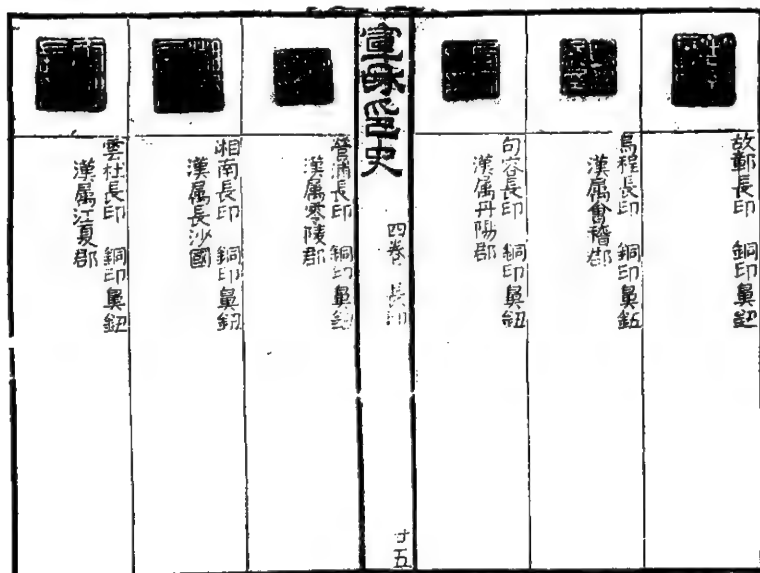 故鄣長印　銅印鼻鈕
烏程長印　銅印鼻鈕
漢属會稽郡
句容長印　銅印鼻鈕
漢属丹陽郡
宣和印史
四卷　長印
廿五
營浦長印　銅印鼻鈕
漢属零陵郡
湘南長印　銅印鼻鈕
漢属長沙國
雲杜長印　銅印鼻鈕
漢属江夏郡